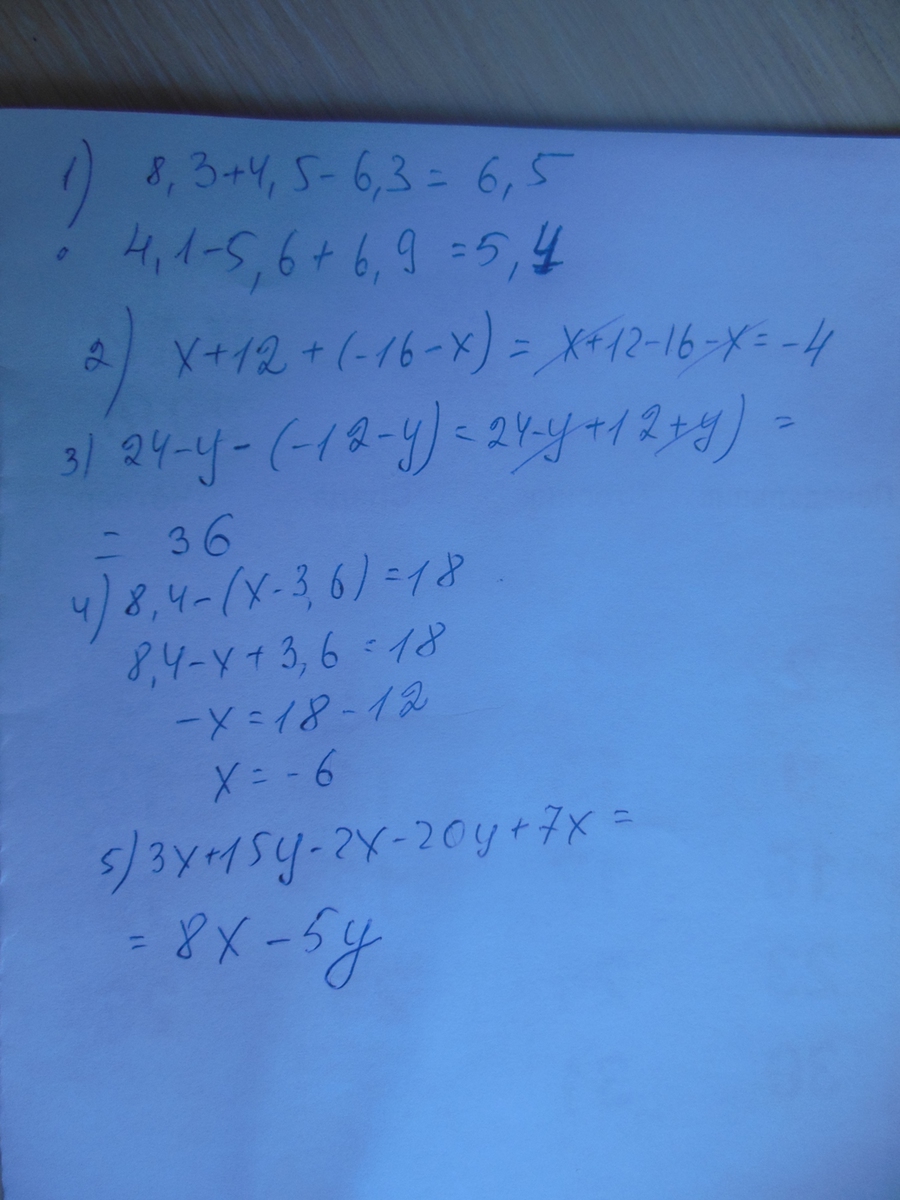 1) 8,3+4,5-6,3=6,5
• 4,1-5,6+6,9=5,4
2) x+12+(-16-x)=x+12-16-x=-4
3) 24-y-(-12-y)=24-y+12+y)=
= 36
4) 8,4-(x-3,6)=18
8,4-x+3,6=18
-x=18-12
x=-6
5) 3x+15y-2x-20y+7x=
= 8x-5y